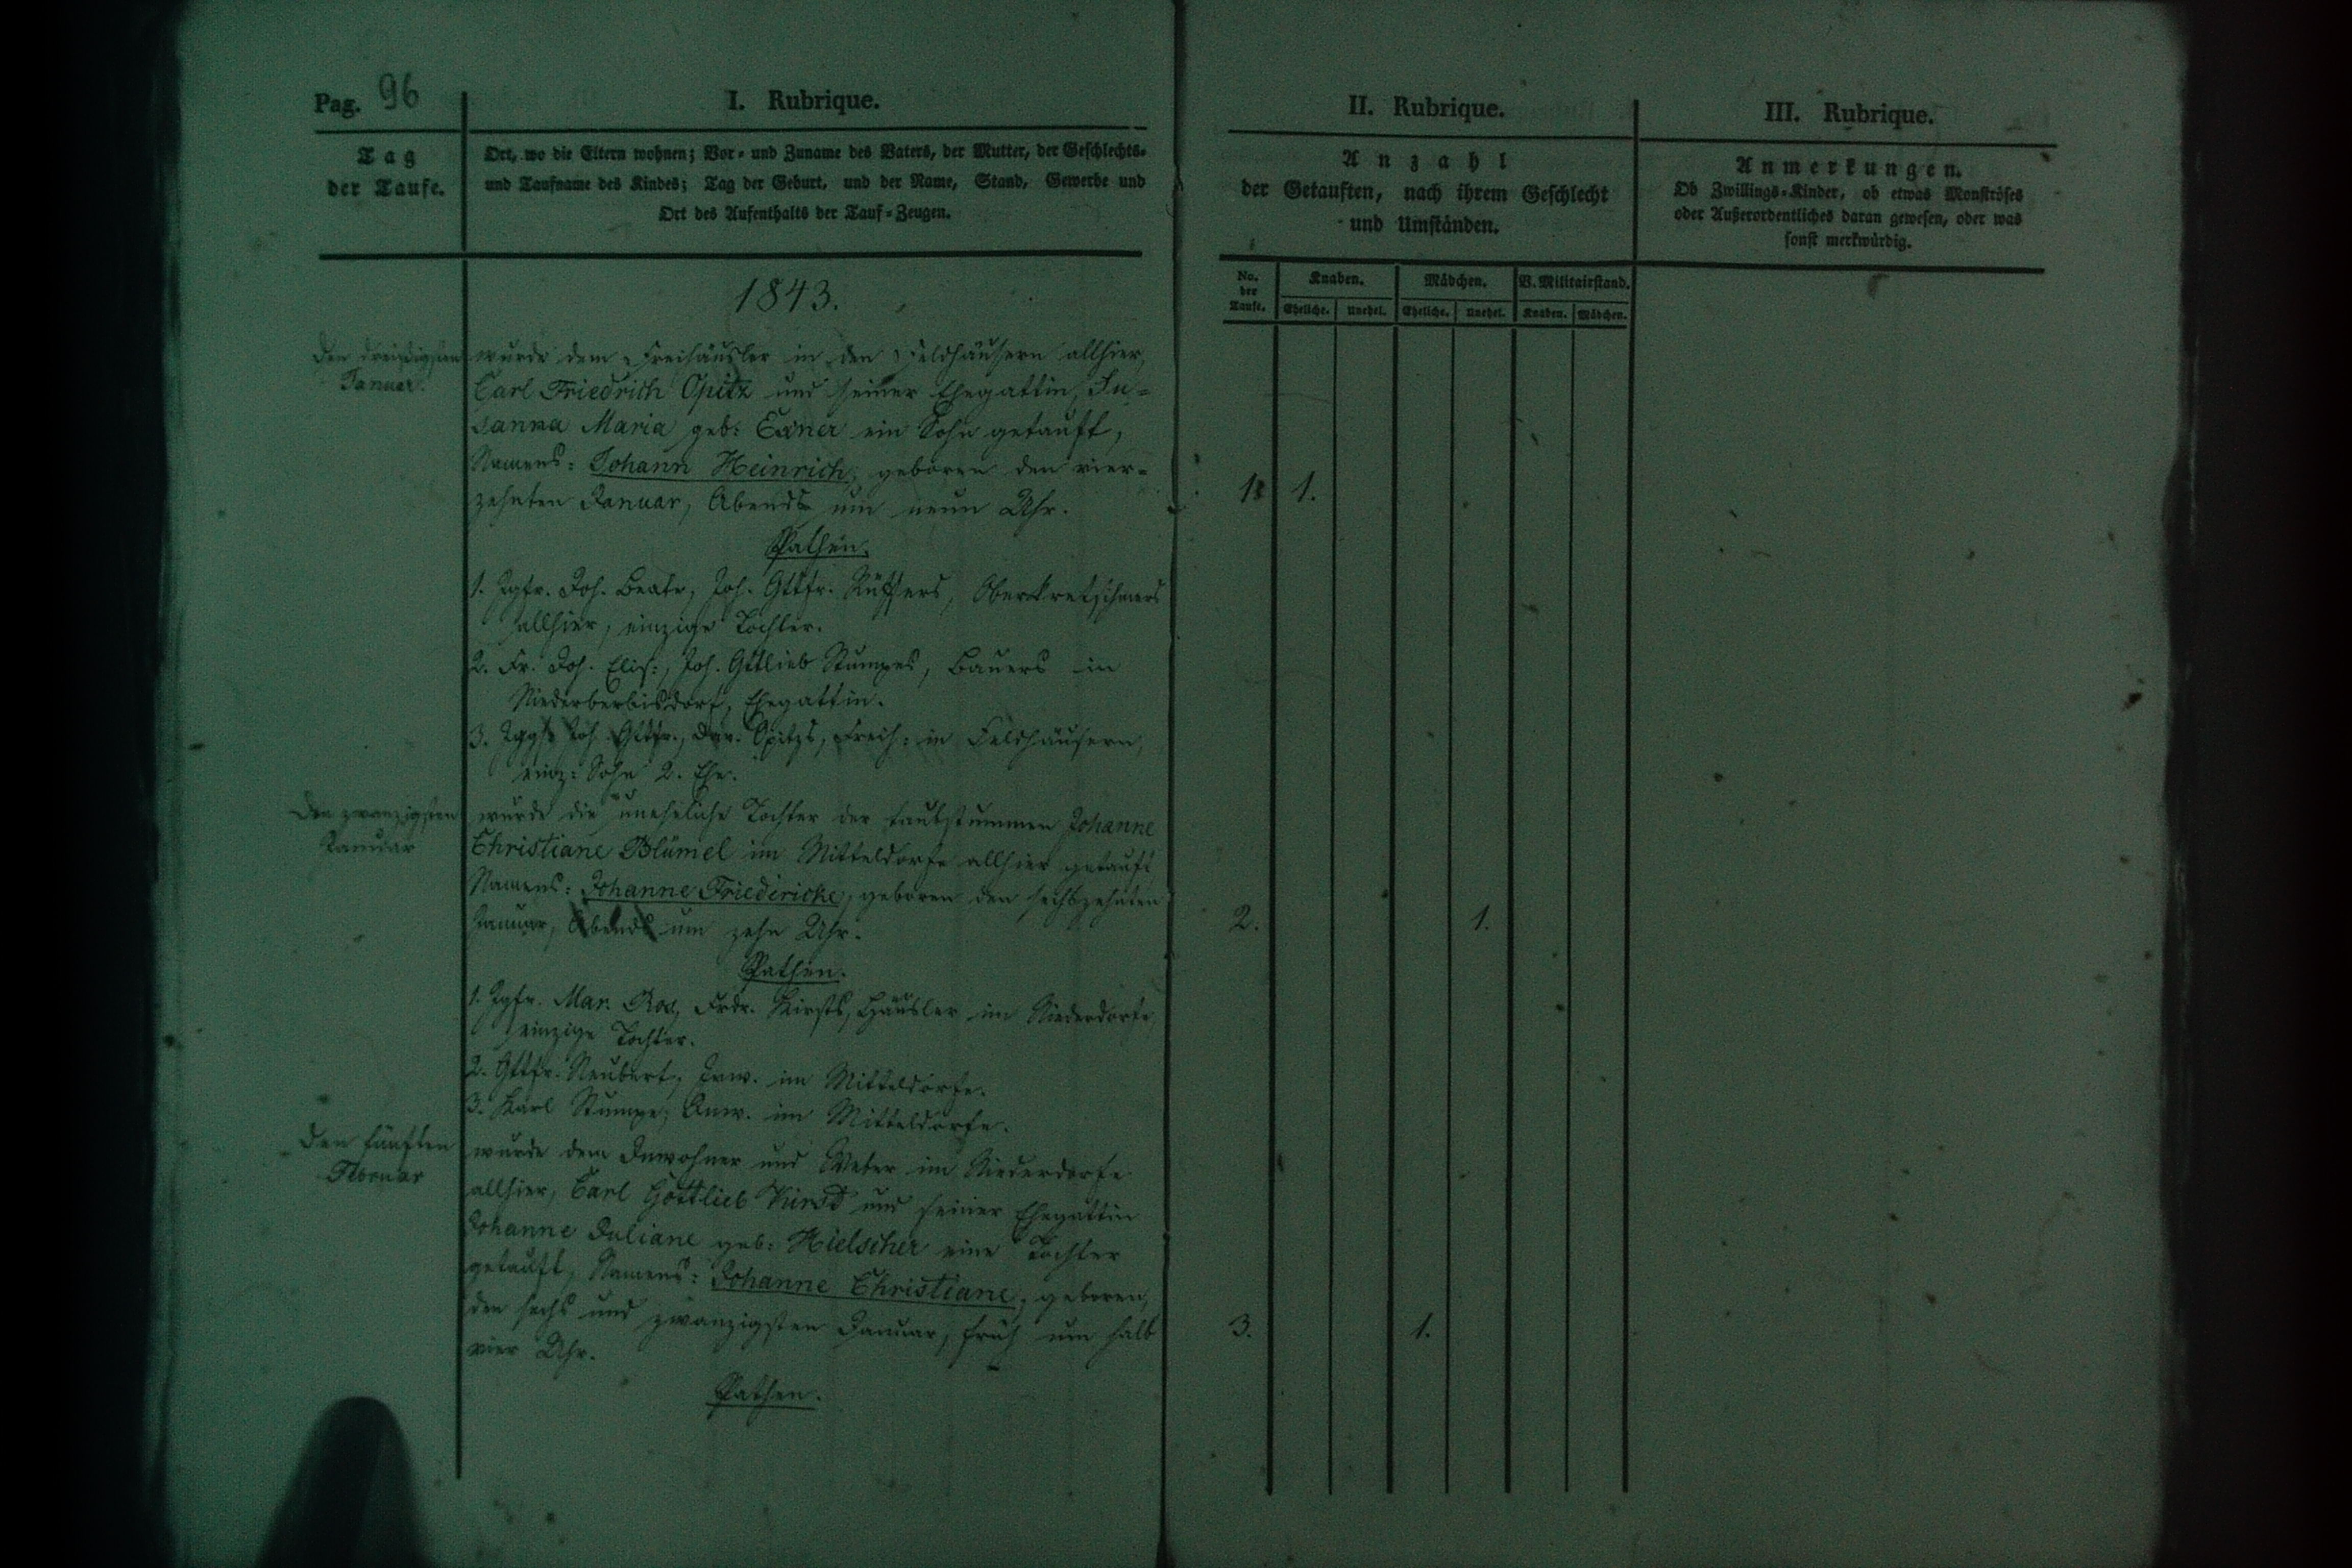 Pag. 96
I. Rubrique.
Tag
der Taufe.
Ort, wo die Eltern wohnen; Vor- und Zuname des Vaters, der Mutter, der Geschlechts-
und Taufname des Kindes; Tag der Geburt, und der Name, Stand, Gewerbe und
Ort des Aufenthalts der Tauf-Zeugen.
1843.
Januar.
wurde dem Freihäusler in den Feldhäusern allhier,
Carl Friedrich Opitz und seiner Ehegattin, Su-
sanna Maria geb: Exner ein Sohn getauft,
Namens: Johann Heinrich, geboren den vier-
zehnten Januar, Abends um neun Uhr.
Pathen.
1. Jgfr. Joh. Beate, Joh. Gttfr. Rüffers, Oberkretschmers
allhier, einzige Tochter.
2. Fr. Joh. Elis:, Joh. Gttlieb Stumpes, Bauers in
Niederberbisdorf, Ehegattin.
3. Jggs. Joh. Gttfr., Dav. Opitzs, Freih: in Feldhäusern,
einz: Sohn 2. Ehe.
Den zwanzigsten
Januar
wurde die uneheliche Tochter der taubstummen Johanne
Christiane Blümel im Mitteldorfe allhier getauft
Namens: Johanne Friedericke, geboren den sechszehnten
Januar, Abends um zehn Uhr.
Pathen.
1. Jgfr. Mar. Ros, Frdr. Kirsts, Häusler im Niederdorfe,
einzige Tochter.
2. Gttfr. Neubert, Inw. im Mitteldorfe.
3. Karl Stumpe, Inw. im Mitteldorfe.
Den fünften
Februar
wurde dem Inwohner und Weber im Niederdorfe
allhier, Carl Gottlieb Kirst und seiner Ehegattin
Johanne Juliane geb: Hielscher eine Tochter
getauft, Namens: Johanne Christiane, geboren,
den sechs und zwanzigsten Januar, früh um halb
vier Uhr.
Pathen.
II. Rubrique.
Anzahl
der Getauften, nach ihrem Geschlecht
und Umständen.
No. der Taufe.
Knaben.
Mädchen.
V. Militairstand.
Eheliche.
Unehel.
Eheliche.
Unehel.
Knaben.
Mädchen.
1. 1.
2. 1.
3. 1.
III. Rubrique.
Anmerkungen.
Ob Zwillings-Kinder, ob etwas Monströses
oder Außerordentliches daran gewesen, oder was
sonst merkwürdig.